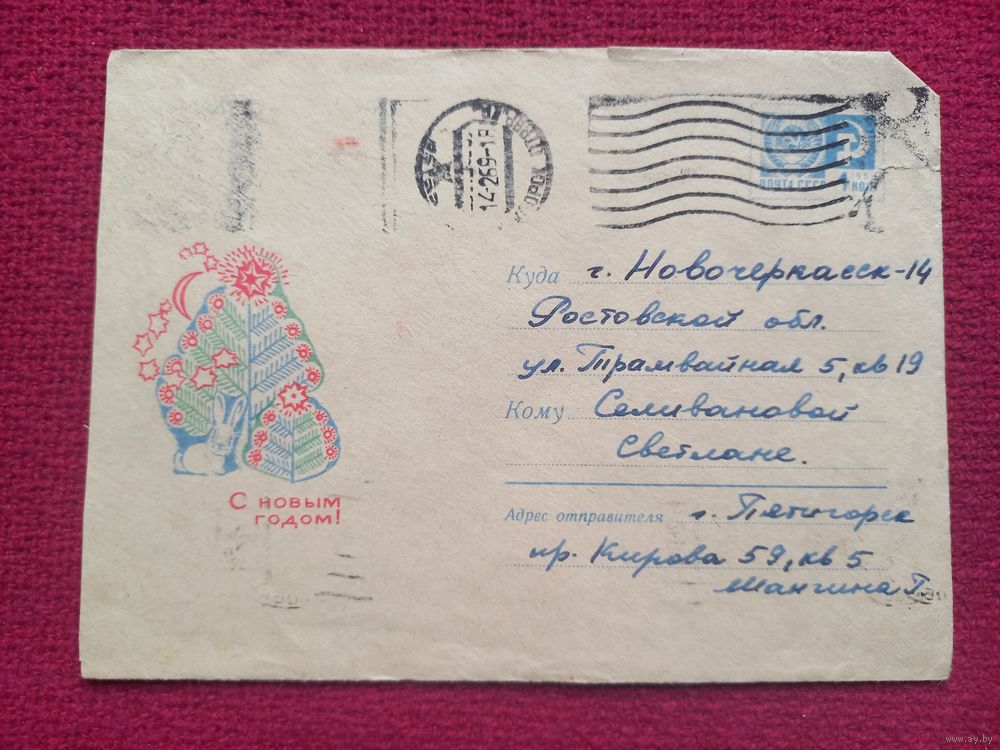 14-2669-18
ПОЧТА СССР
Куда г. Новочеркасск-14
Ростовской обл.
ул. Трамвайная 5, кв 19
Кому Селивановой
Светлане.
С НОВЫМ
ГОДОМ!
Адрес отправителя г. Пятигорск
пр. Кирова 59, кв 5
www.ay.by